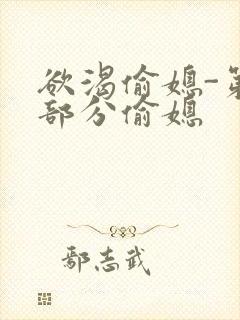 欲渴偷媳-第
部分偷媳
鄢志武